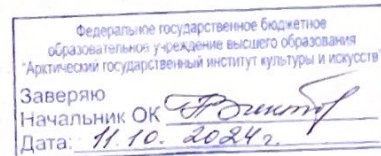 Федеральное государственное бюджетное
образовательное учреждение высшего образования
"Арктический государственный институт культуры и искусств"
Заверяю
Начальник ОК
Дата: 11.10. 2024г.